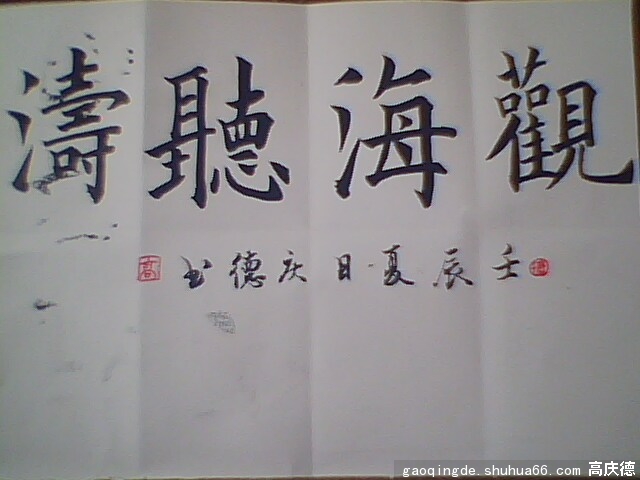 觀海聽濤
壬辰夏·日庆德书
高
gaoqingde.shuhua66.com 高庆德